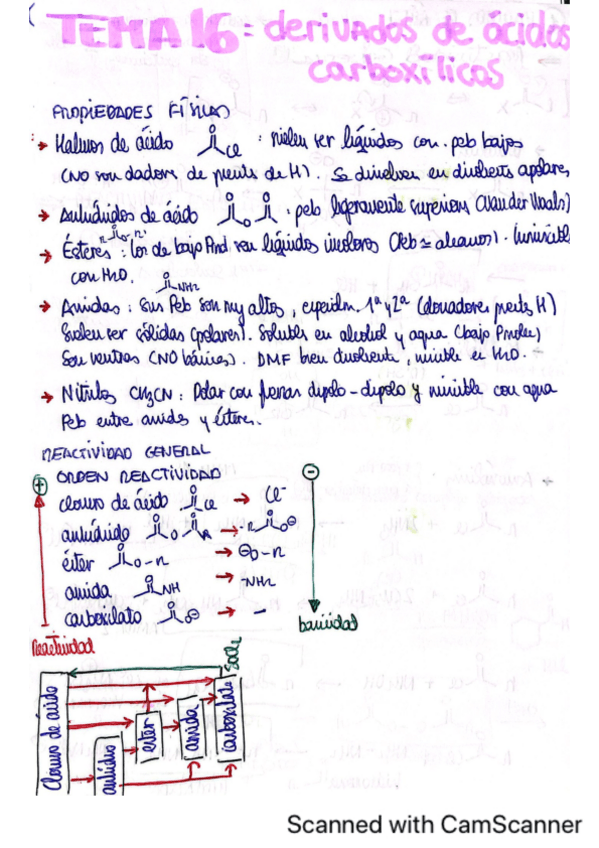 TEMA 16 = derivados de ácidos
carboxílicos
PROPIEDADES FÍSICAS
→ Haluros de ácido Cl : suelen ser líquidos con peb bajos
(NO son dadores de puente de H). Se disuelven en disolventes apolares
→ Anhídridos de ácido O : peb ligeramente superiores (Van der Waals)
→ Ésteres : los de bajo Pmol son líquidos incoloros (Peb ≃ alcanos). Inmiscible
con H2O.
NH2
→ Amidas : Sus Peb son muy altos, 1ª y 2ª (donadores puente H)
Suelen ser sólidas (polares). Solubles en alcohol y agua (bajo Pmolec)
Son neutras (NO básicas). DMF buen disolvente, miscible en H2O.
→ Nitrilos CH3CN : Polar con fuerzas dipolo-dipolo y miscible con agua
Peb entre amidas y ésteres.
REACTIVIDAD GENERAL
+ ORDEN REACTIVIDAD −
cloruro de ácido Cl → Cl⁻
anhídrido O → O⊖
éster O-R → ⊖O-R
amida NH → NH2
carboxilato O⊖ → −
Reactividad
basicidad
SOCl2
Cloruro de ácido
anhídrido
éster
amida
carboxilato
Scanned with CamScanner